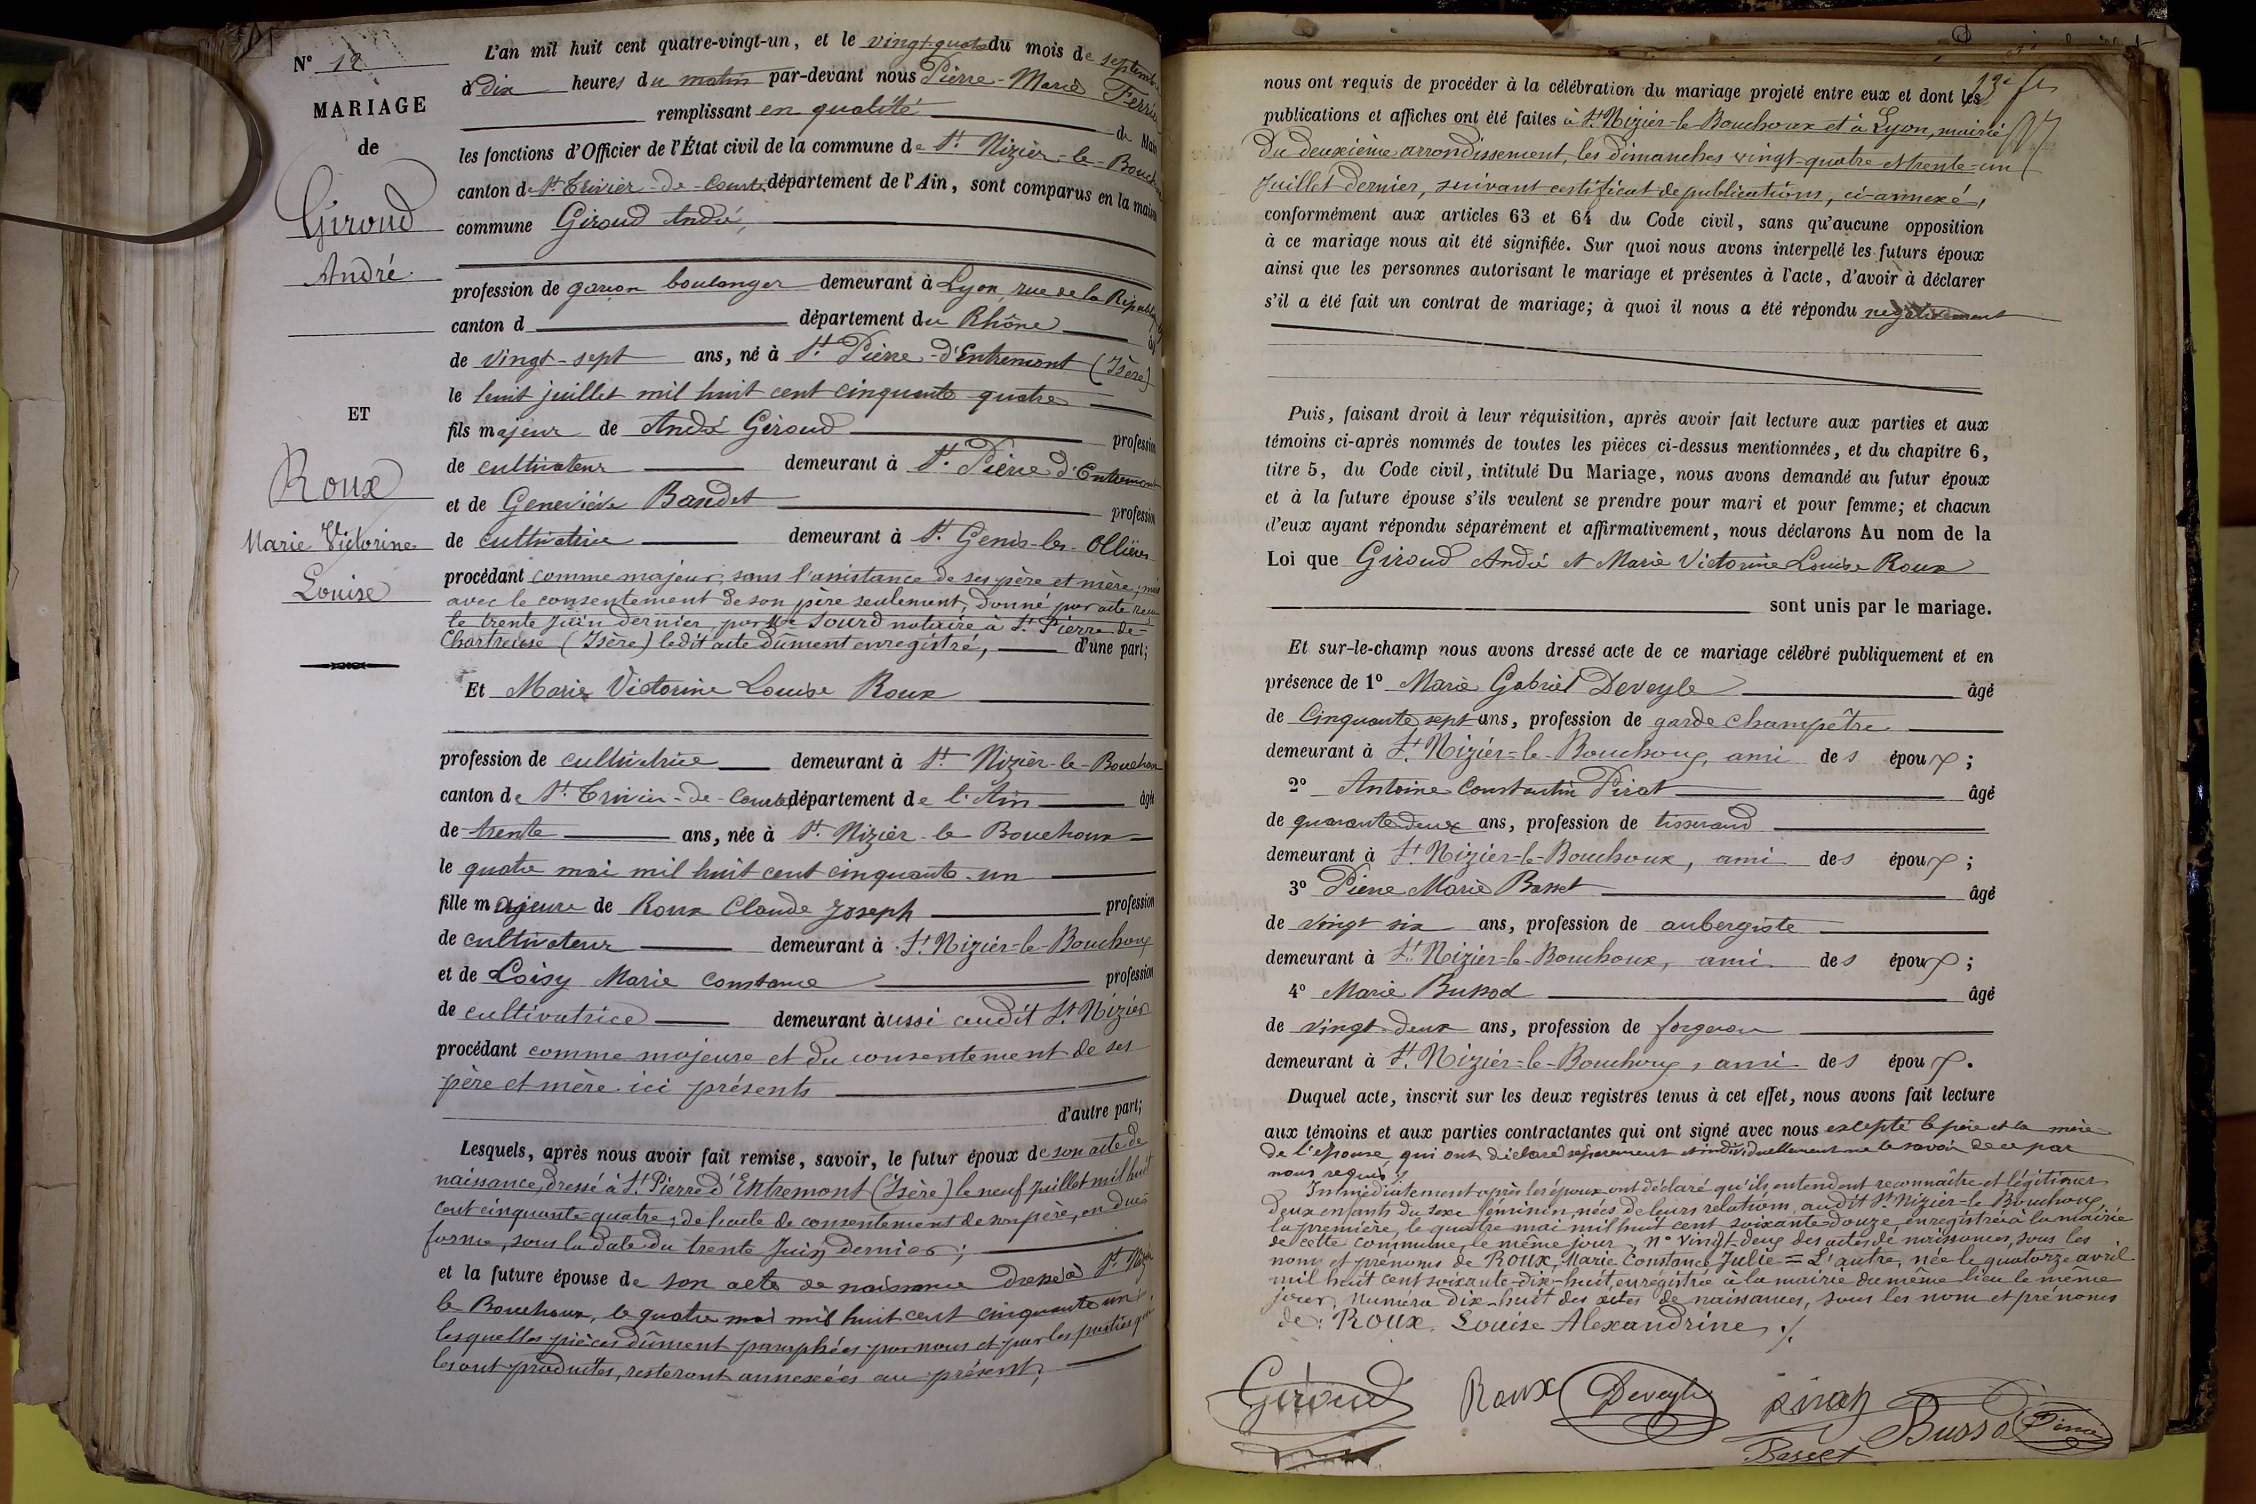 N° 12
MARIAGE
de
Giroud
André
ET
Roux
Marie Victorine
Louise
L'an mil huit cent quatre-vingt-un, et le vingt-quatre du mois de septembre
à Dix heures du matin par-devant nous Pierre-Marie
remplissant en qualité de
les fonctions d'Officier de l'État civil de la commune de St. Nizier-le-Bouchoux
canton de St Trivier-de-Courtes, département de l'Ain, sont comparus en la mairie
commune Giroud André,
profession de garçon boulanger demeurant à Lyon, rue de la République
canton d département du Rhône
de vingt-sept ans, né à St. Pierre-d'Entremont (Isère)
le huit juillet mil huit cent cinquante quatre
fils majeur de André Giroud profession
de cultivateur demeurant à St. Pierre d'Entremont
et de Geneviève Bandet profession
de cultivatrice demeurant à St. Genis-les-Ollières
procédant comme majeur, sans l'assistance de ses père et mère, mais
avec le consentement de son père seulement, donné par acte reçu
le trente Juin dernier, par Me Sourd notaire à St. Pierre-de-
Chartreuse (Isère) ledit acte dûment enregistré, d'une part;
Et Marie Victorine Louise Roux
profession de cultivatrice demeurant à St. Nizier-le-Bouchoux
canton de St. Trivier-de-Courtes, département de l'Ain âgée
de trente ans, née à St. Nizier-le Bouchoux
le quatre mai mil huit cent cinquante-un
fille majeure de Roux Claude Joseph profession
de cultivateur demeurant à St Nizier-le-Bouchoux
et de Loisy Marie Constance profession
de cultivatrice demeurant aussi audit St. Nizier
procédant comme majeure et du consentement de ses
père et mère ici présents
d'autre part;
Lesquels, après nous avoir fait remise, savoir, le futur époux de son acte de
naissance, dressé à St. Pierre d'Entremont (Isère) le neuf juillet mil huit
cent cinquante-quatre; de l'acte de consentement de son père, en due
forme, sous la date du trente Juin dernier;
et la future épouse de son acte de naissance dressé à St. Nizier
le Bouchoux, le quatre mai mil huit cent cinquante un,
lesquelles pièces dûment paraphées par nous et par les parties qui
les ont produites, resteront annexées au présent;
nous ont requis de procéder à la célébration du mariage projeté entre eux et dont les
publications et affiches ont été faites à St. Nizier-le Bouchoux et à Lyon, mairie
du deuxième arrondissement, les dimanches vingt-quatre et trente-un
Juillet dernier, suivant certificat de publications, ci-annexé,
conformément aux articles 63 et 64 du Code civil, sans qu'aucune opposition
à ce mariage nous ait été signifiée. Sur quoi nous avons interpellé les futurs époux
ainsi que les personnes autorisant le mariage et présentes à l'acte, d'avoir à déclarer
s'il a été fait un contrat de mariage; à quoi il nous a été répondu négativement
Puis, faisant droit à leur réquisition, après avoir fait lecture aux parties et aux
témoins ci-après nommés de toutes les pièces ci-dessus mentionnées, et du chapitre 6,
titre 5, du Code civil, intitulé Du Mariage, nous avons demandé au futur époux
et à la future épouse s'ils veulent se prendre pour mari et pour femme; et chacun
d'eux ayant répondu séparément et affirmativement, nous déclarons Au nom de la
Loi que Giroud André et Marie Victorine Louise Roux
sont unis par le mariage.
Et sur-le-champ nous avons dressé acte de ce mariage célébré publiquement et en
présence de 1° Marie Gabriel Deveyle âgé
de Cinquante sept ans, profession de garde champêtre
demeurant à St. Nizier-le-Bouchoux, ami des époux;
2° Antoine Constantin Pirat âgé
de quarante deux ans, profession de tisserand
demeurant à St. Nizier-le-Bouchoux, ami des époux;
3° Pierre Marie Basset âgé
de vingt six ans, profession de aubergiste
demeurant à St. Nizier-le-Bouchoux, ami des époux;
4° Marie Bussod âgé
de vingt-deux ans, profession de forgeron
demeurant à St. Nizier-le-Bouchoux, ami des époux.
Duquel acte, inscrit sur les deux registres tenus à cet effet, nous avons fait lecture
aux témoins et aux parties contractantes qui ont signé avec nous excepté le père et la mère
de l'épouse qui ont déclaré séparément et individuellement ne le savoir de ce par
nous requis.
Immédiatement après les époux ont déclaré qu'ils entendent reconnaître et légitimer
deux enfants du sexe féminin, nées de leurs relations, audit St. Nizier-le Bouchoux,
la première, le quatre mai mil huit cent soixante-douze, enregistrée à la mairie
de cette commune le même jour, N° vingt-deux des actes de naissances, sous les
noms et prénoms de Roux, Marie Constance Julie = L'autre, née le quatorze avril
mil huit cent soixante-dix-huit, enregistrée à la mairie du même lieu le même
jour, Numéro dix-huit des actes de naissances, sous les nom et prénoms
de: Roux, Louise Alexandrine ./.
Giroud Roux Deveyle Pirat
Basset Bussod